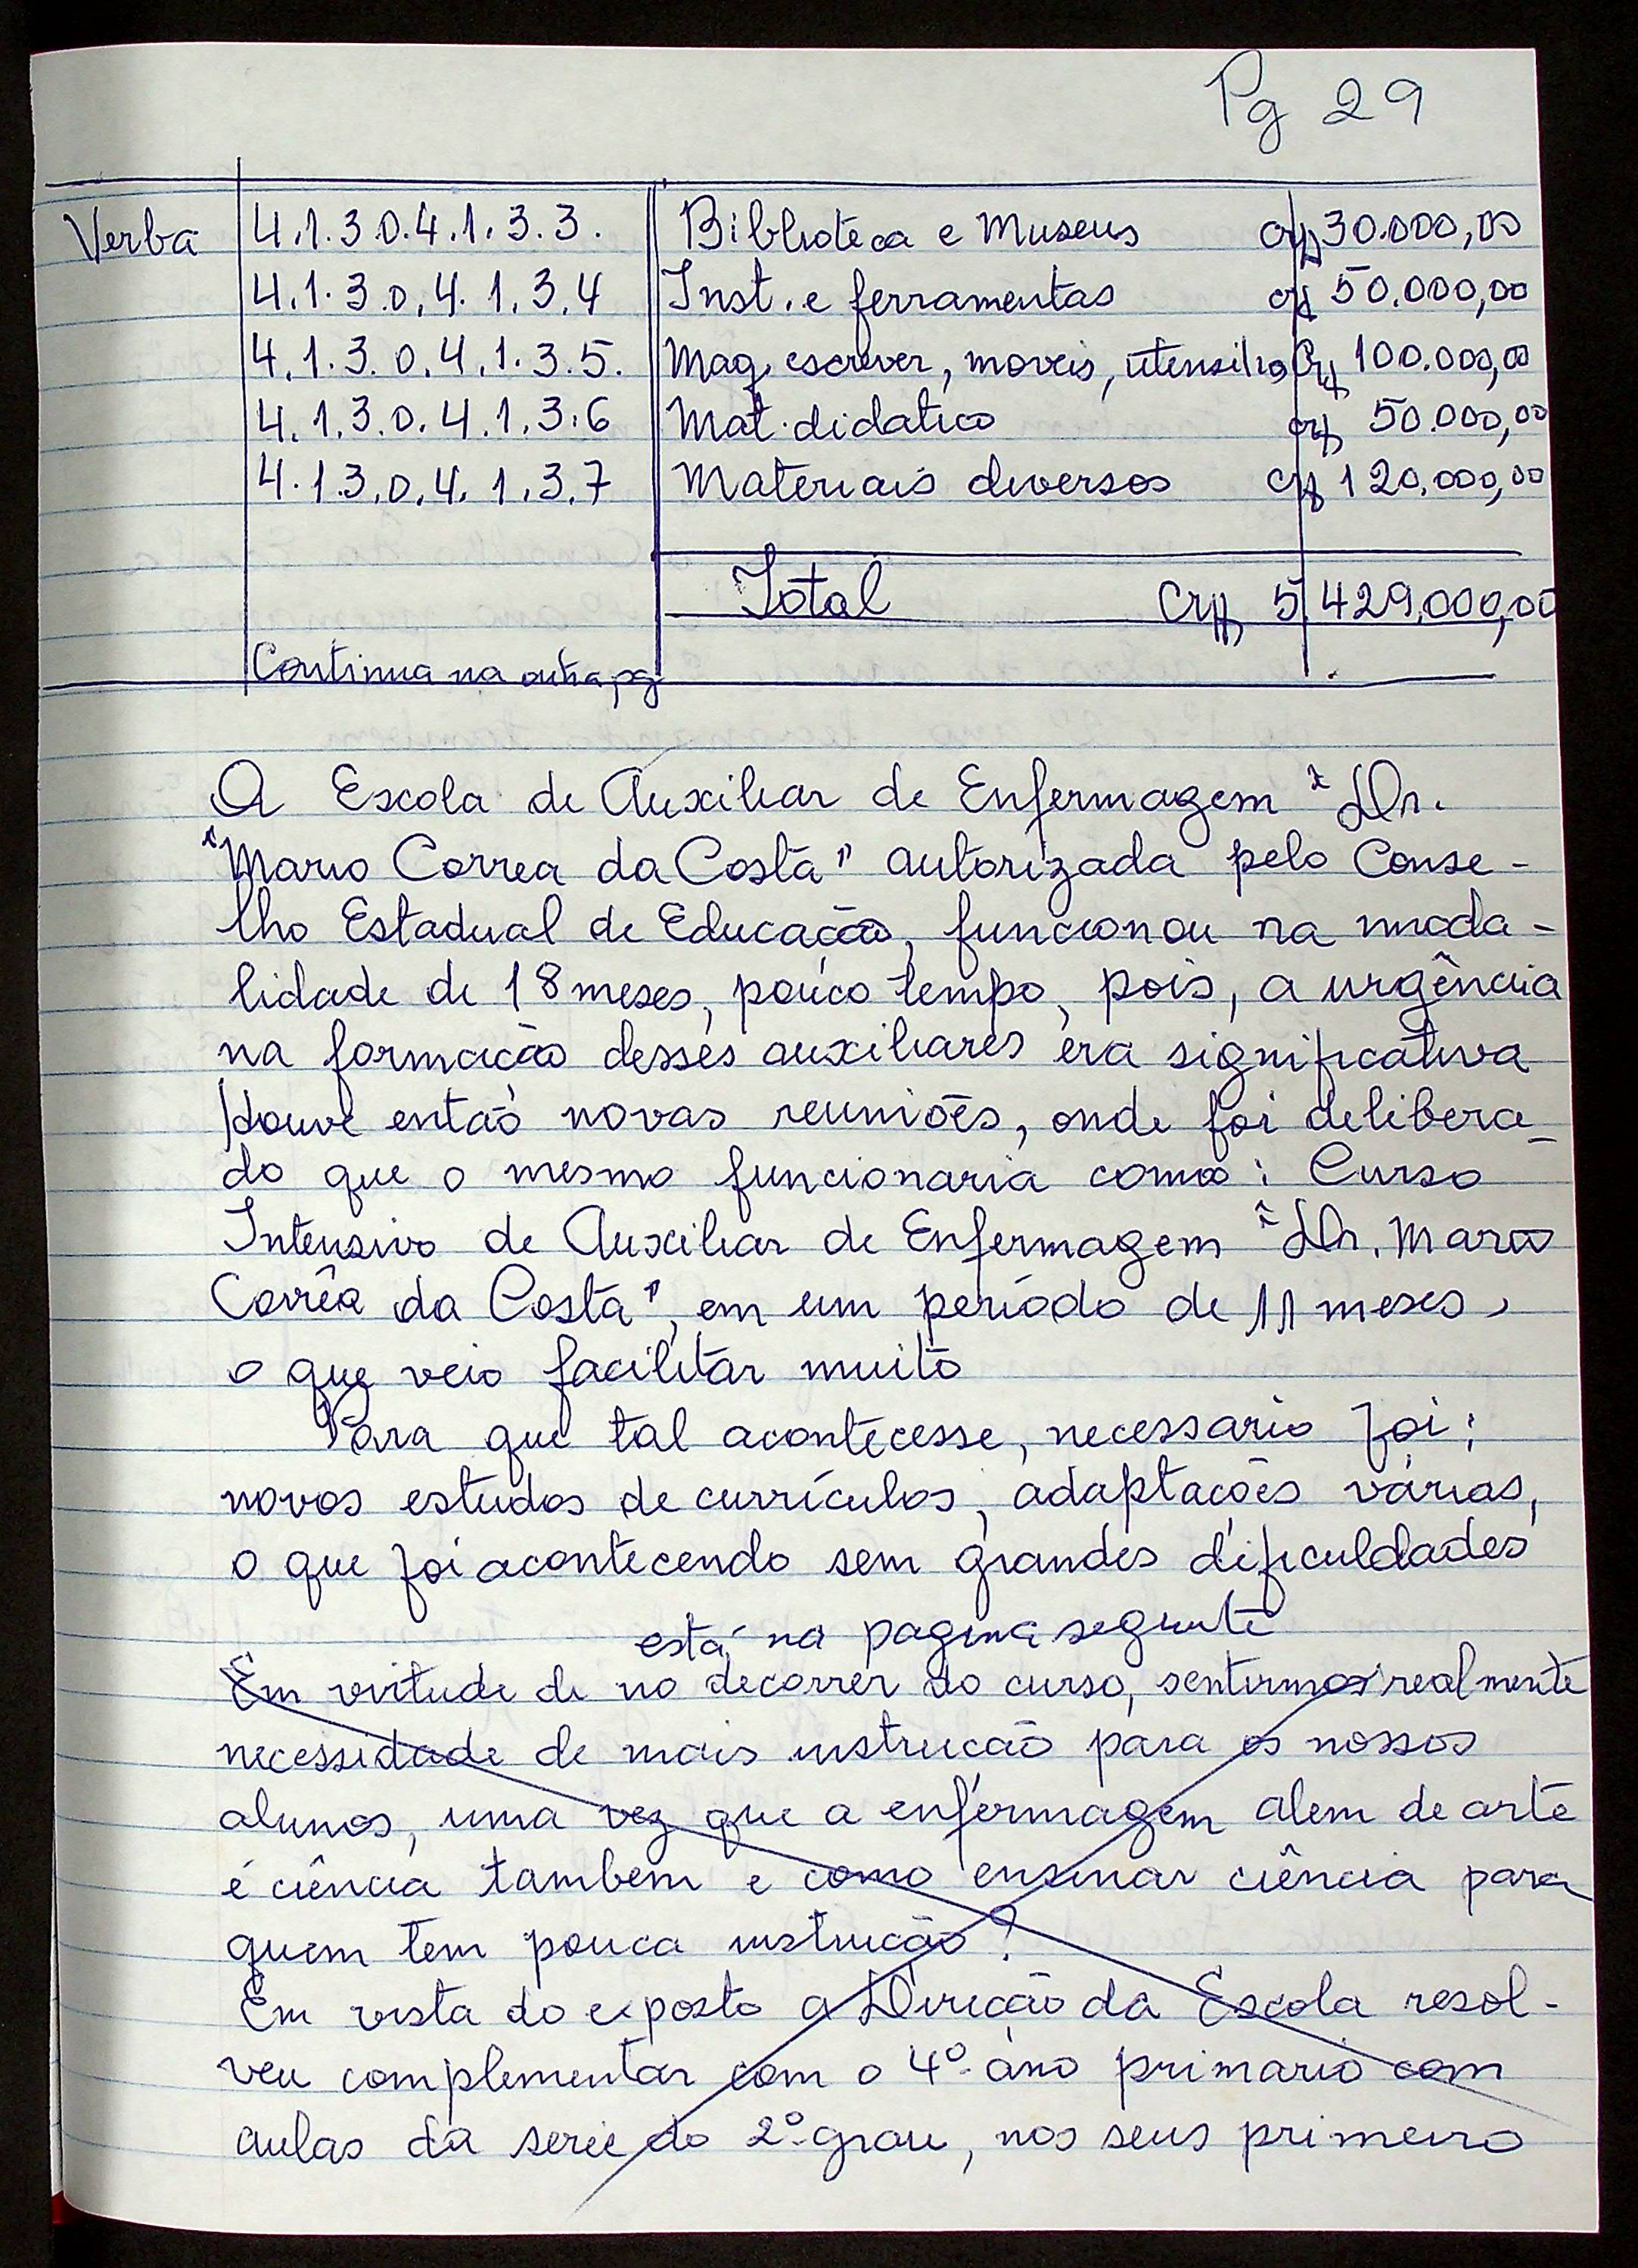 Pg 29
Verba 4.1.3.0.4.1.3.3. Biblioteca e Museus Cr$ 30.000,00
4.1.3.0.4.1.3.4 Inst. e ferramentas Cr$ 50.000,00
4.1.3.0.4.1.3.5. Maq. escrever, moveis, utensilios Cr$ 100.000,00
4.1.3.0.4.1.3.6 Mat. didatico Cr$ 50.000,00
4.1.3.0.4.1.3.7 Materiais diversos Cr$ 120.000,00
Total Cr$ 5.429.000,00
Continua na outra pg
A Escola de Auxiliar de Enfermagem "Dr.
"Mario Correa da Costa" autorizada pelo Conse-
lho Estadual de Educação, funcionou na moda-
lidade de 18 meses, pouco tempo, pois, a urgência
na formação desses auxiliares era significativa
Houve então novas reuniões, onde foi delibera-
do que o mesmo funcionaria como: Curso
Intensivo de Auxiliar de Enfermagem "Dr. Mario
Corrêa da Costa", em um período de 11 meses,
o que veio facilitar muito
Para que tal acontecesse, necessario foi:
novos estudos de currículos, adaptações várias,
o que foi acontecendo sem grandes dificuldades
está na pagina seguinte
Em virtude de no decorrer do curso, sentirmos realmente
necessidade de mais instrução para os nossos
alunos, uma vez que a enfermagem alem de arte
é ciência tambem e como ensinar ciência para
quem tem pouca instrução?
Em vista do exposto a Direção da Escola resol-
veu complementar com o 4º ano primario com
aulas da serie do 2º grau, nos seus primeiro